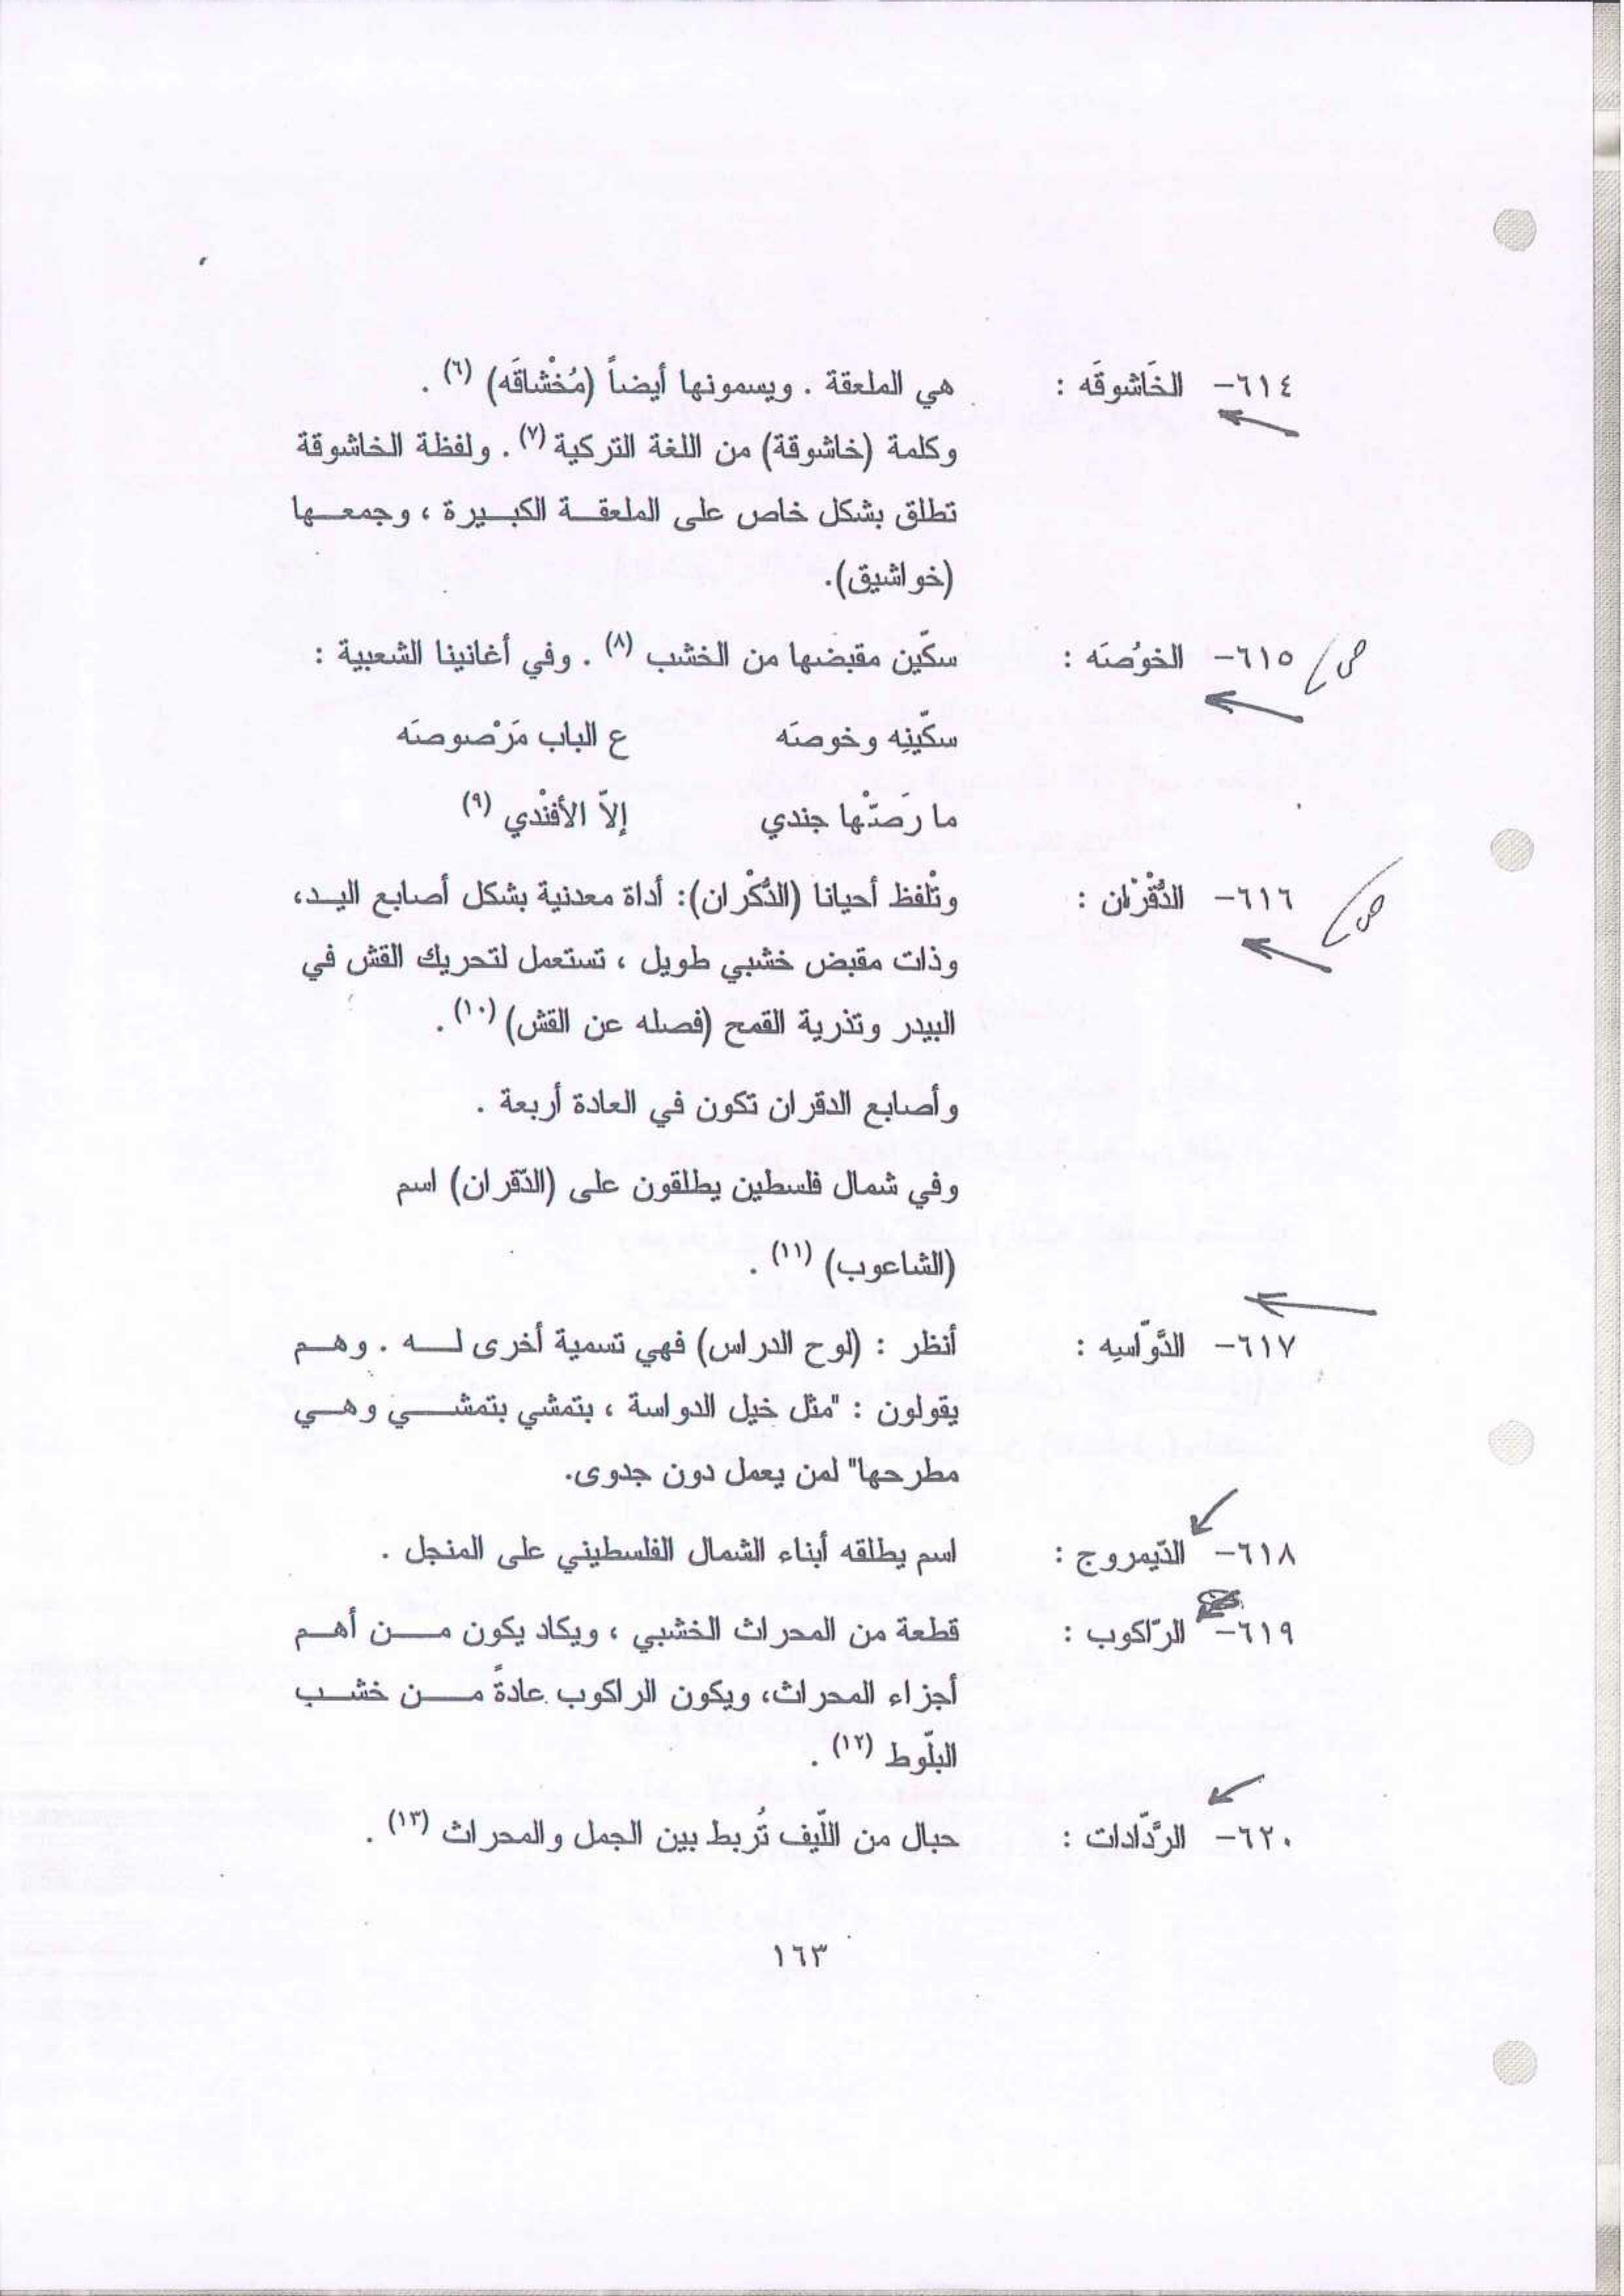 ٦١٤- الخَاشوقَه : هي الملعقة . ويسمونها أيضاً (مُخْشاقَه) (٦) .
وكلمة (خاشوقة) من اللغة التركية (٧) . ولفظة الخاشوقة
تطلق بشكل خاص على الملعقة الكبيرة ، وجمعها
(خواشيق).
ص ٦١٥- الخوُصنَه : سكّين مقبضها من الخشب (٨) . وفي أغانينا الشعبية :
سكّينِه وخوصنَه ع الباب مَرْصوصنَه
ما رَصتّْها جندي إلاّ الأفنْدي (٩)
ص ٦١٦- الدُّقْران : وتْلفظ أحيانا (الدُّكْران): أداة معدنية بشكل أصابع اليد،
وذات مقبض خشبي طويل ، تستعمل لتحريك القش في
البيدر وتذرية القمح (فصله عن القش) (١٠) .
وأصابع الدقران تكون في العادة أربعة .
وفي شمال فلسطين يطلقون على (الدّقران) اسم
(الشاعوب) (١١) .
٦١٧- الدَّوّاسِه : أنظر : (لوح الدراس) فهي تسمية أخرى له . وهم
يقولون : "مثل خيل الدواسة ، بتمشي بتمشي وهي
مطرحها" لمن يعمل دون جدوى.
٦١٨- الدّيمروج : اسم يطلقه أبناء الشمال الفلسطيني على المنجل .
٦١٩- الرّاكوب : قطعة من المحراث الخشبي ، ويكاد يكون من أهم
أجزاء المحراث، ويكون الراكوب عادةً من خشب
البلّوط (١٢) .
٦٢٠- الرَّدّادات : حبال من اللّيف تُربط بين الجمل والمحراث (١٣) .
١٦٣